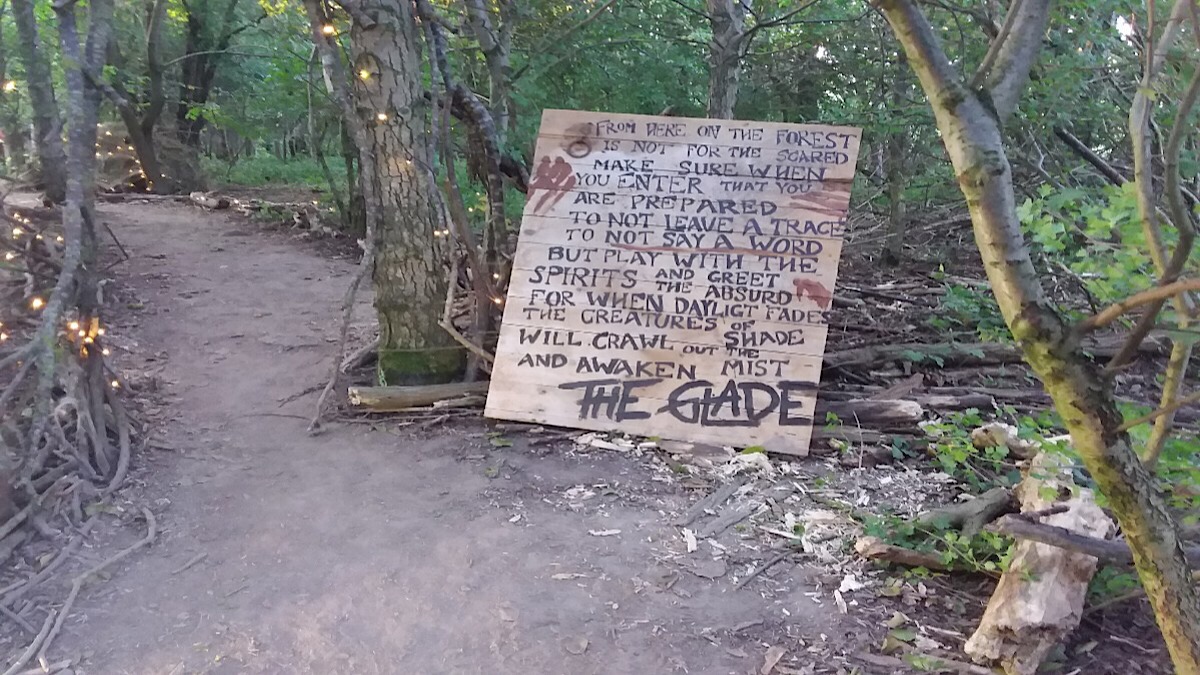 FROM HERE ON THE FOREST
IS NOT FOR THE SCARED
MAKE SURE WHEN
YOU ENTER THAT YOU
ARE PREPARED
TO NOT LEAVE A TRACE
TO NOT SAY A WORD
BUT PLAY WITH THE
SPIRITS AND GREET
THE ABSURD
FOR WHEN DAYLIGT FADES
THE CREATURES OF
WILL CRAWL SHADE
OUT THE
AND AWAKEN MIST
THE GLADE